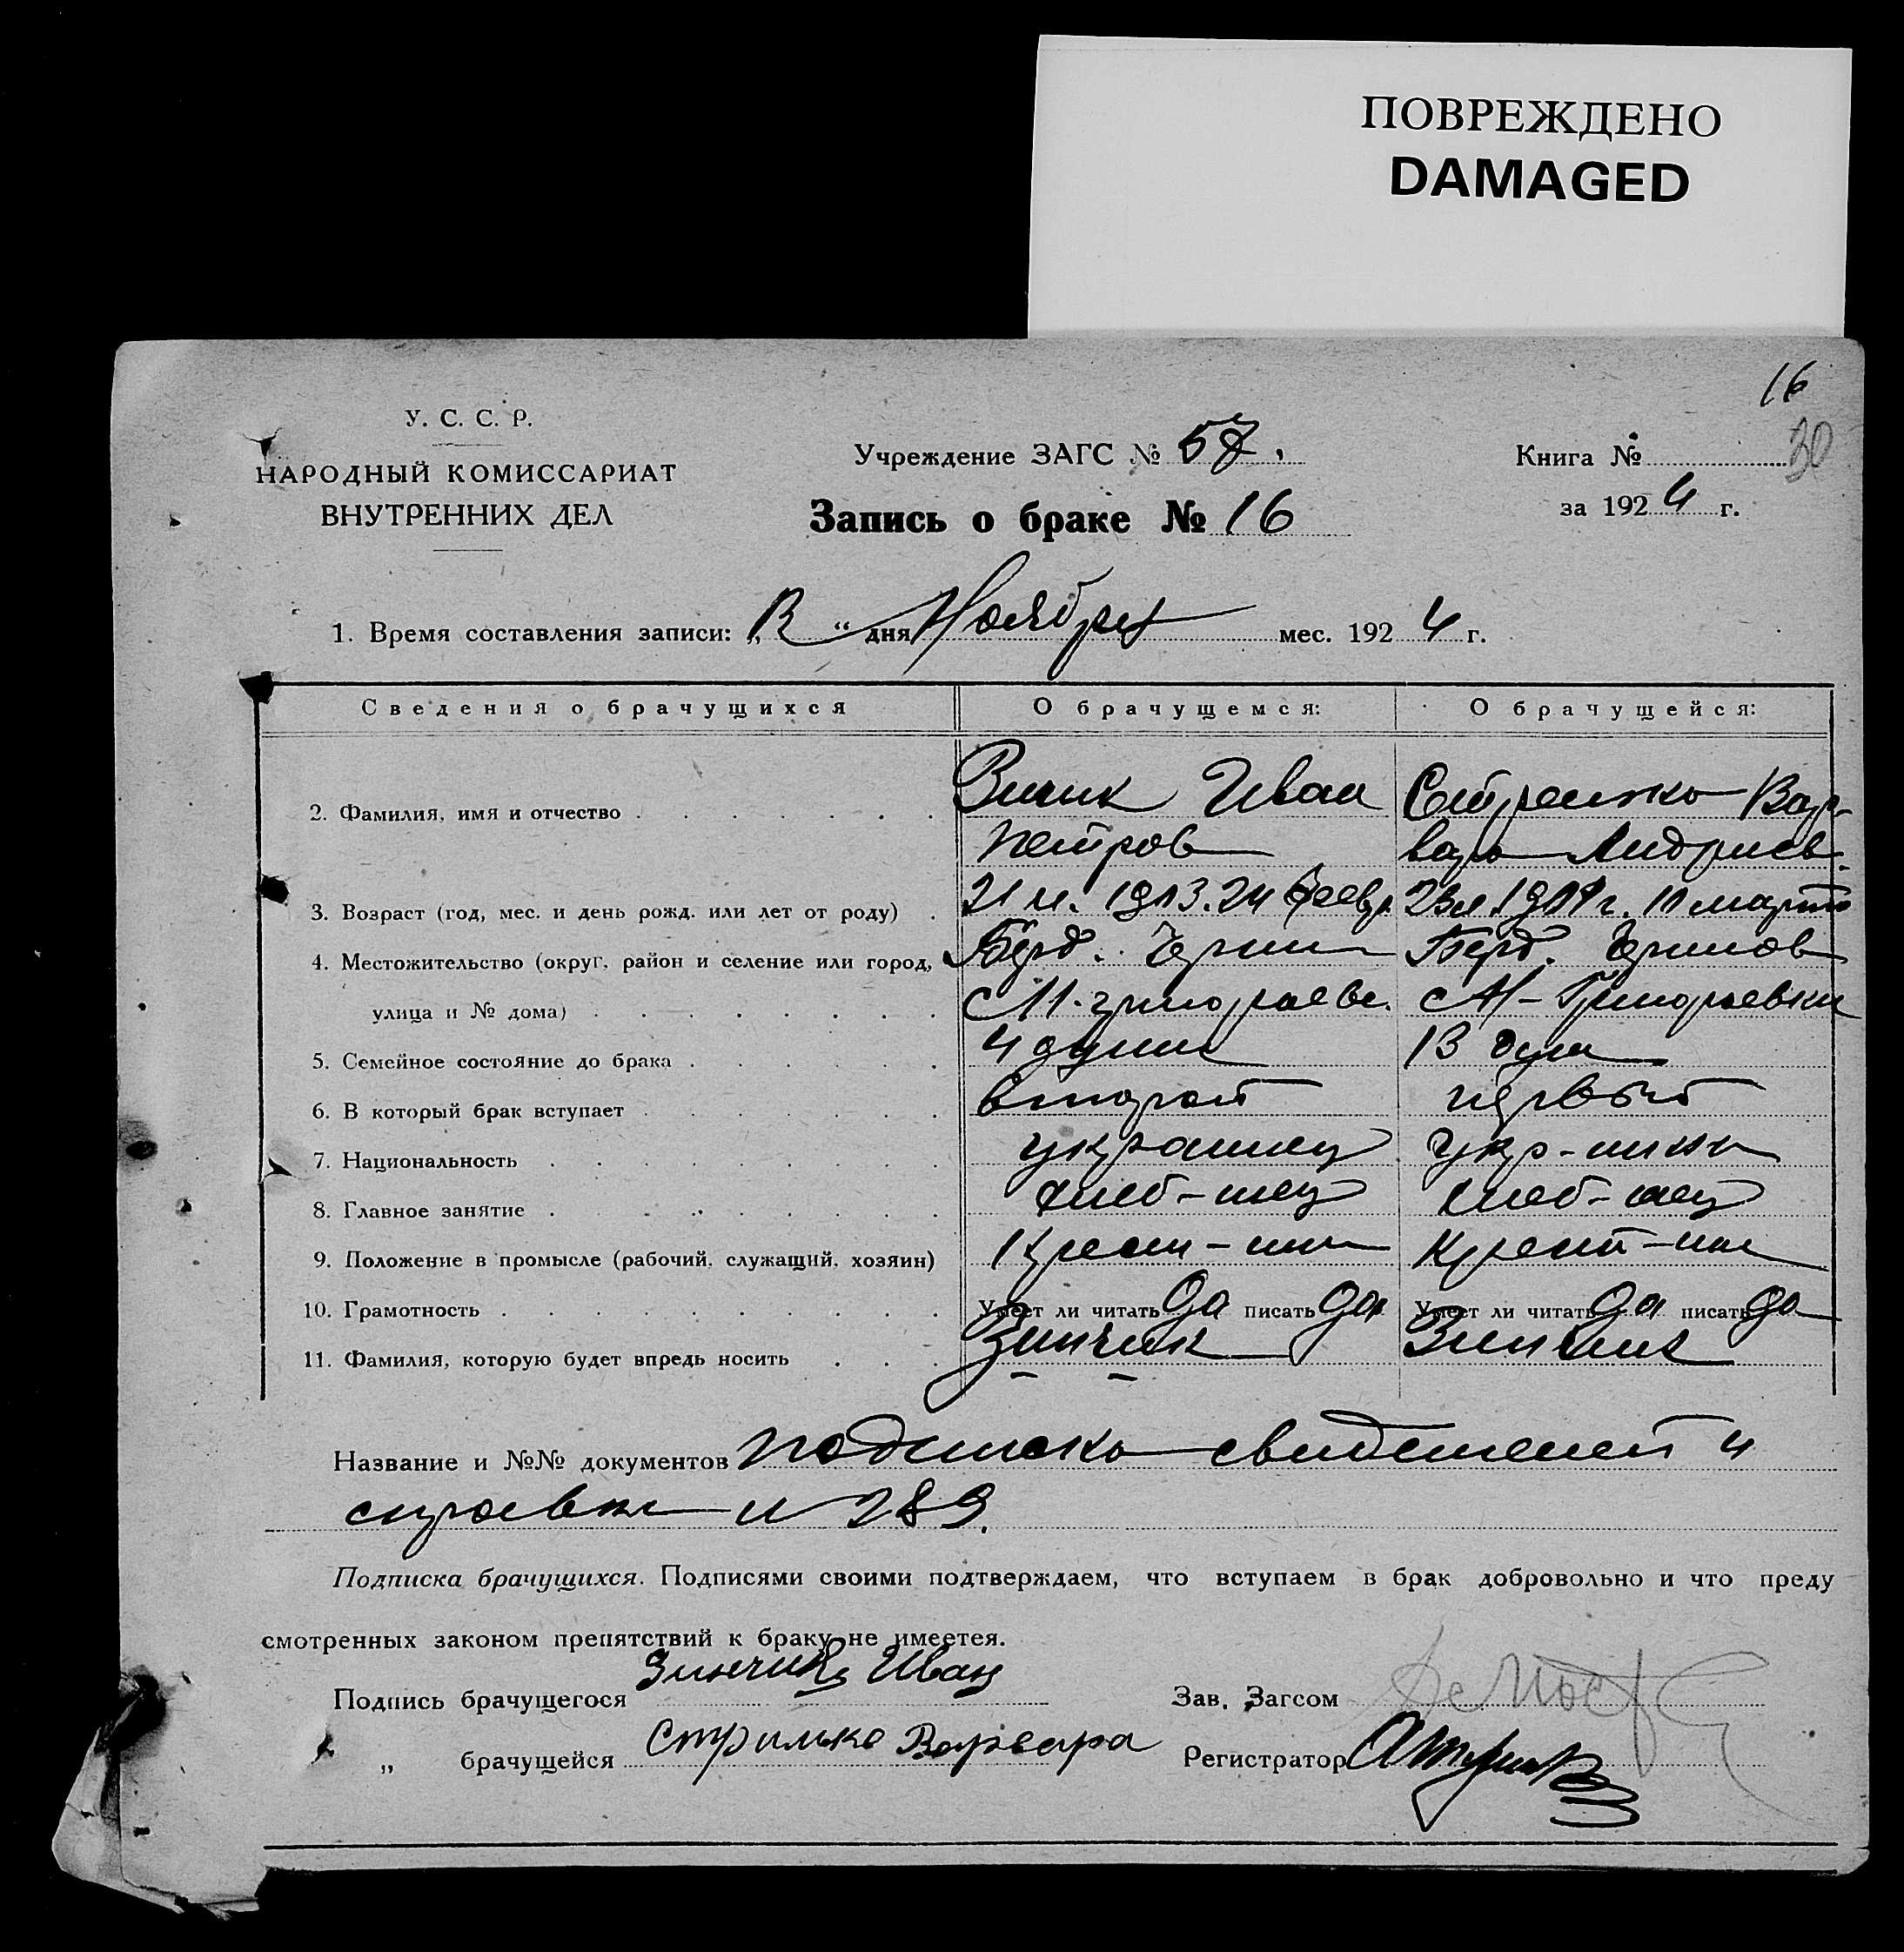 ПОВРЕЖДЕНО
DAMAGED
16
30
У. С. С. Р.
НАРОДНЫЙ КОМИССАРИАТ
ВНУТРЕННИХ ДЕЛ
Учреждение ЗАГС № 57.
Книга №
за 1924 г.
Запись о браке № 16
1. Время составления записи: „ “ дня Ноября мес. 1924 г.
Сведения о брачущихся
О брачущемся:
О брачущейся:
2. Фамилия, имя и отчество
Иван
Петров
Вар-
вара Андриев.
3. Возраст (год, мес. и день рожд. или лет от роду)
21 л. 1903. 24 февр.
23 л. г. 11 марта
4. Местожительство (округ, район и селение или город,
улица и № дома)
Берд. Черниг
с М. григораевк.
Берд. Чернигов
с М-Григораевки
5. Семейное состояние до брака
4 души
13 душ
6. В который брак вступает
второй
первый
7. Национальность
украинец
укр-инка
8. Главное занятие
хлеб-шец
хлеб-шец
9. Положение в промысле (рабочий, служащий, хозяин)
Крест-нин
Крест-нка
10. Грамотность
Умеет ли читать да писать да
Умеет ли читать да писать да
11. Фамилия, которую будет впредь носить
Зинчик
Зинчик
Название и №№ документов подписка свидетелей и
справка № 289.
Подписка брачущихся. Подписями своими подтверждаем, что вступаем в брак добровольно и что преду
смотренных законом препятствий к браку не имеется.
Подпись брачущегося Зинчик Иван
Зав. Загсом
„ брачущейся Стрилько Варвара
Регистратор